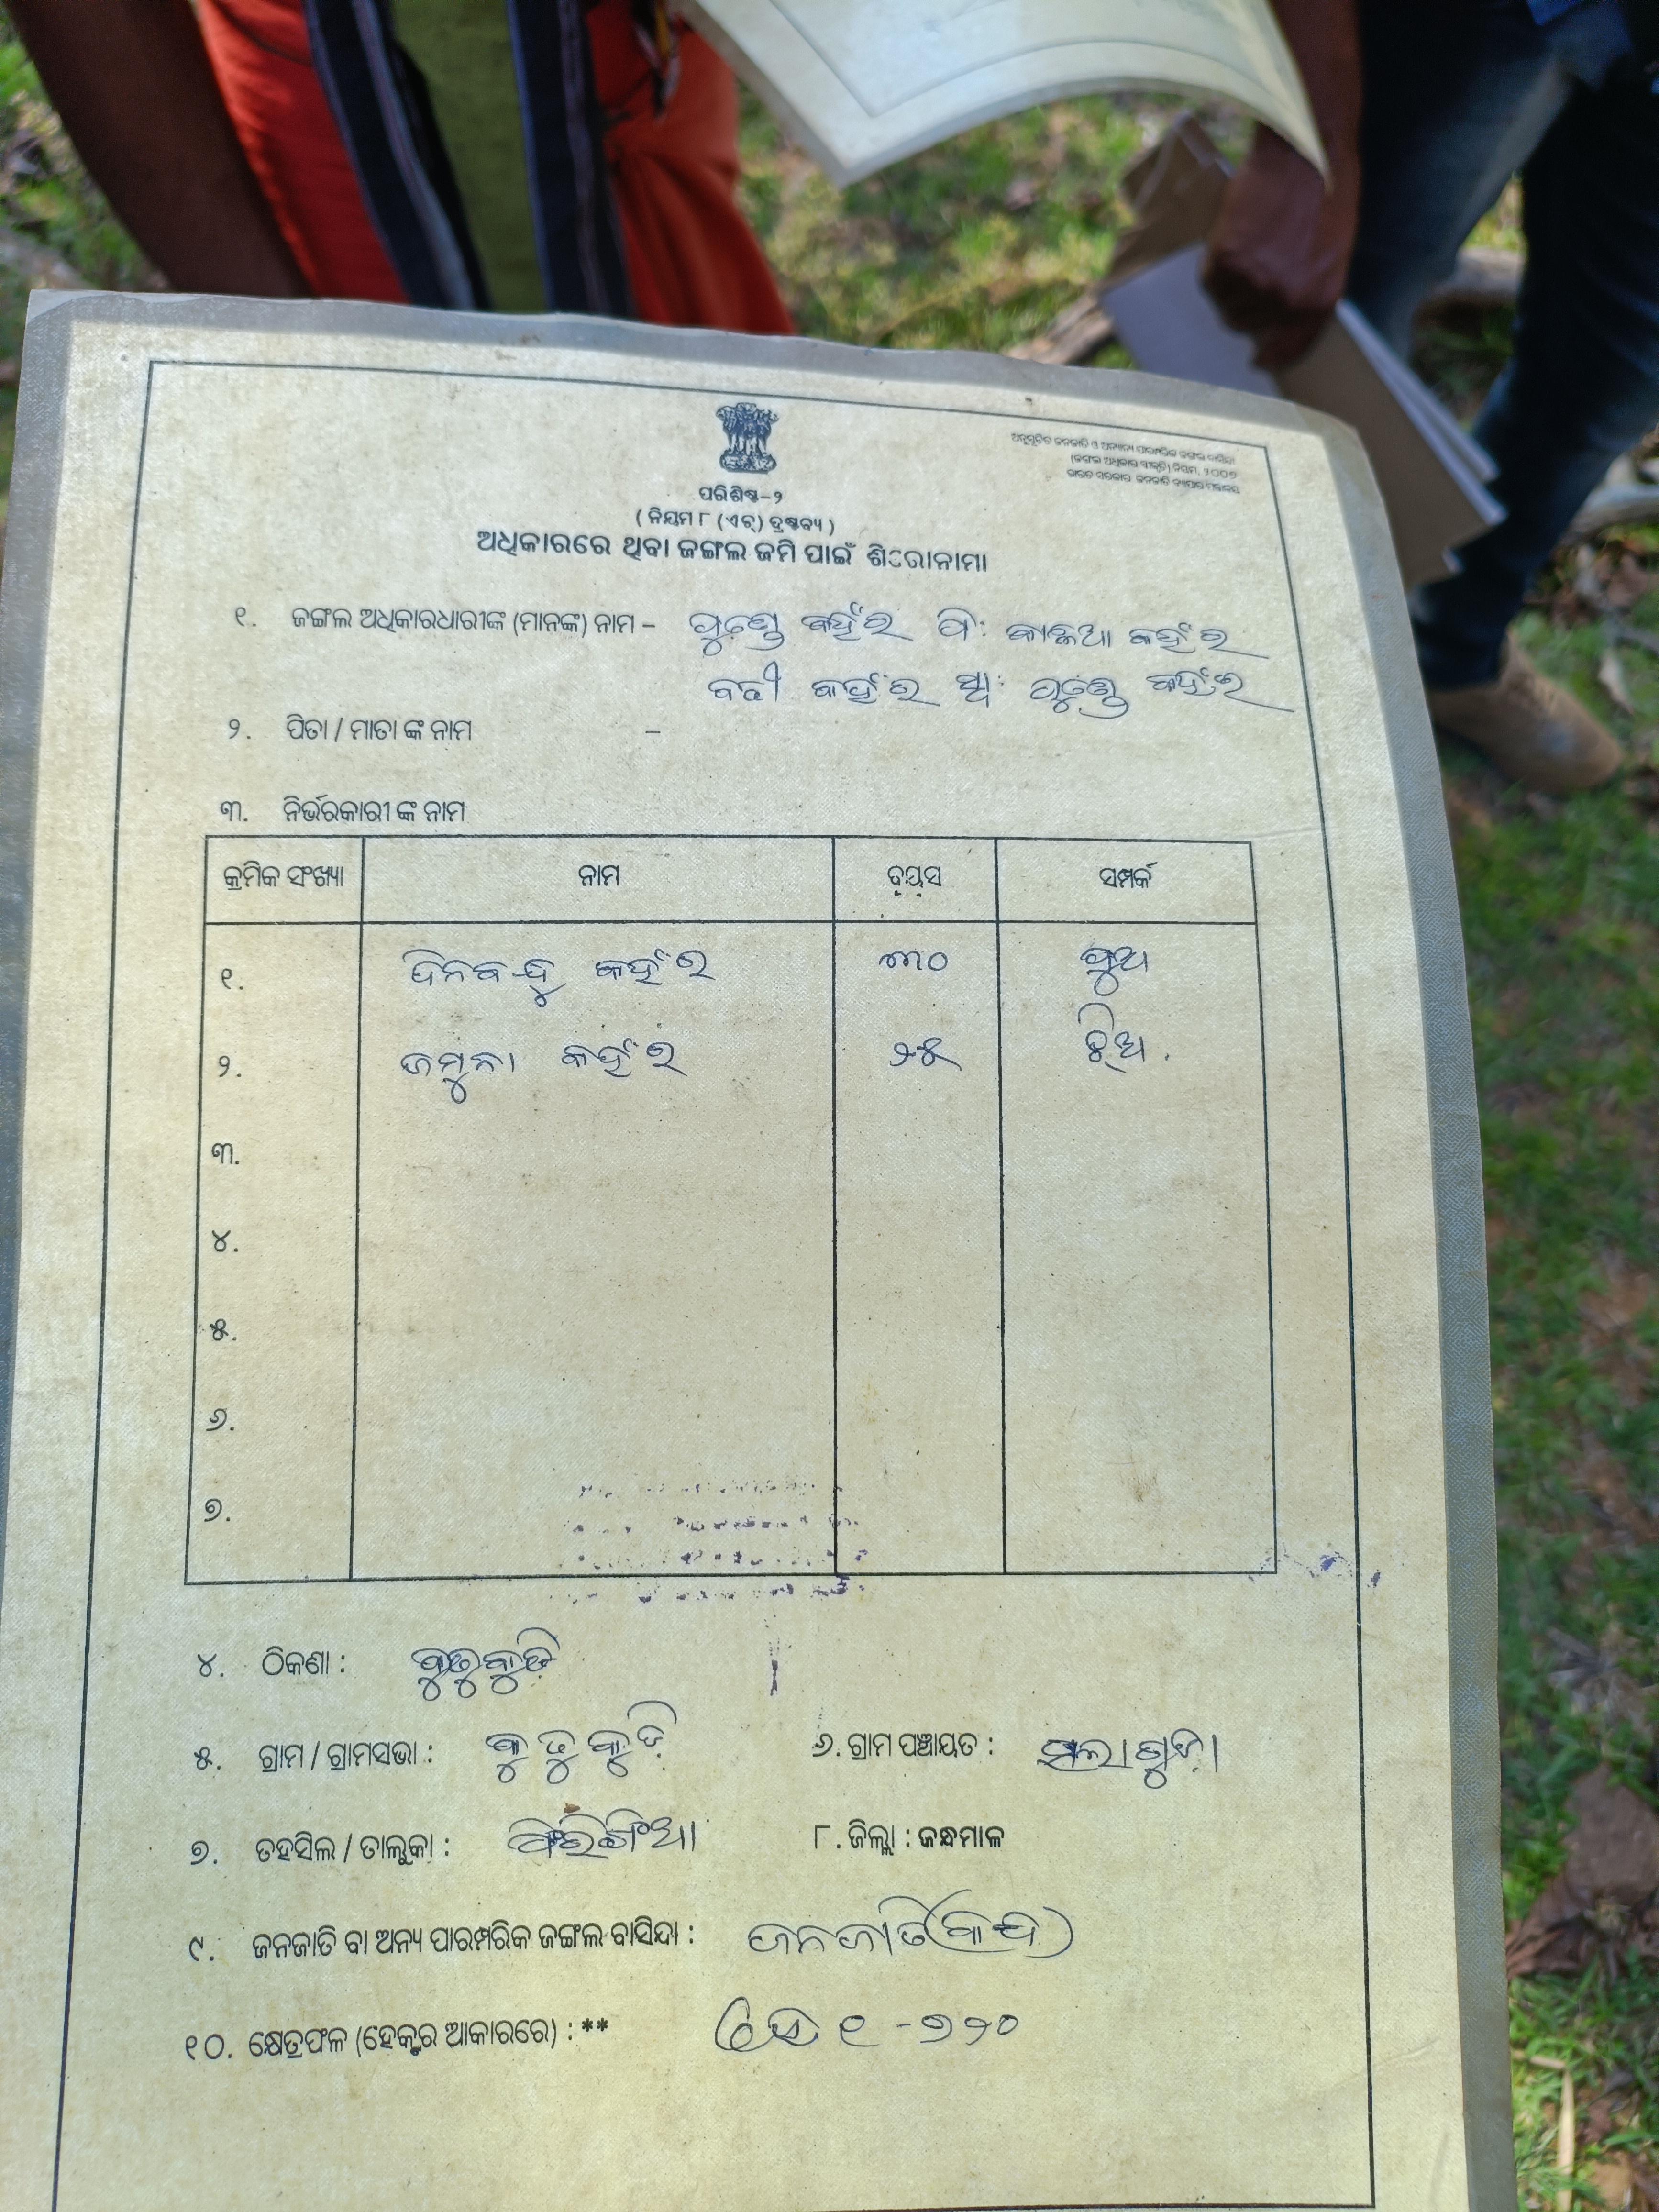 ଅନୁସୂଚିତ ଜନଜାତି ଓ ଅନ୍ୟାନ୍ୟ ପାରମ୍ପରିକ ଜଙ୍ଗଲ ବାସିନ୍ଦା
(ଜଙ୍ଗଲ ଅଧିକାର ସ୍ୱୀକୃତି) ନିୟମ, ୨୦୦୭
ଭାରତ ସରକାର ଜନଜାତି ବ୍ୟାପାର ମନ୍ତ୍ରାଳୟ
ପରିଶିଷ୍ଟ-୨
( ନିୟମ ୮ (ଏଚ୍) ଦ୍ରଷ୍ଟବ୍ୟ )
ଅଧିକାରରେ ଥିବା ଜଙ୍ଗଲ ଜମି ପାଇଁ ଶିରୋନାମା
୧. ଜଙ୍ଗଲ ଅଧିକାରଧାରୀଙ୍କ (ମାନଙ୍କ) ନାମ – କହଁର ପି: କହଁର
କହଁର ସ୍ୱା: କହଁର
୨. ପିତା / ମାତା ଙ୍କ ନାମ –
୩. ନିର୍ଭରକାରୀ ଙ୍କ ନାମ
କ୍ରମିକ ସଂଖ୍ୟା ନାମ ବୟସ ସମ୍ପର୍କ
୧. ଦିନବନ୍ଧୁ କହଁର ୩୦ ପୁଅ
୨. ଜମୁନା କହଁର ୨୫ ଝିଅ .
୩.
୪.
୫.
୬.
୭.
୪. ଠିକଣା : କୁଡୁକୁଡି
୫. ଗ୍ରାମ / ଗ୍ରାମସଭା : କୁଡୁକୁଡି ୬. ଗ୍ରାମ ପଞ୍ଚାୟତ :
୭. ତହସିଲ / ତାଲୁକା : ଫିରିଙ୍ଗିଆ ୮. ଜିଲ୍ଲା : କନ୍ଧମାଳ
୯. ଜନଜାତି ବା ଅନ୍ୟ ପାରମ୍ପରିକ ଜଙ୍ଗଲ ବାସିନ୍ଦା : ଜନଜାତି (କନ୍ଧ)
୧୦. କ୍ଷେତ୍ରଫଳ (ହେକ୍ଟର ଆକାରରେ) : ** ହେ ୧ - ୭୨୦